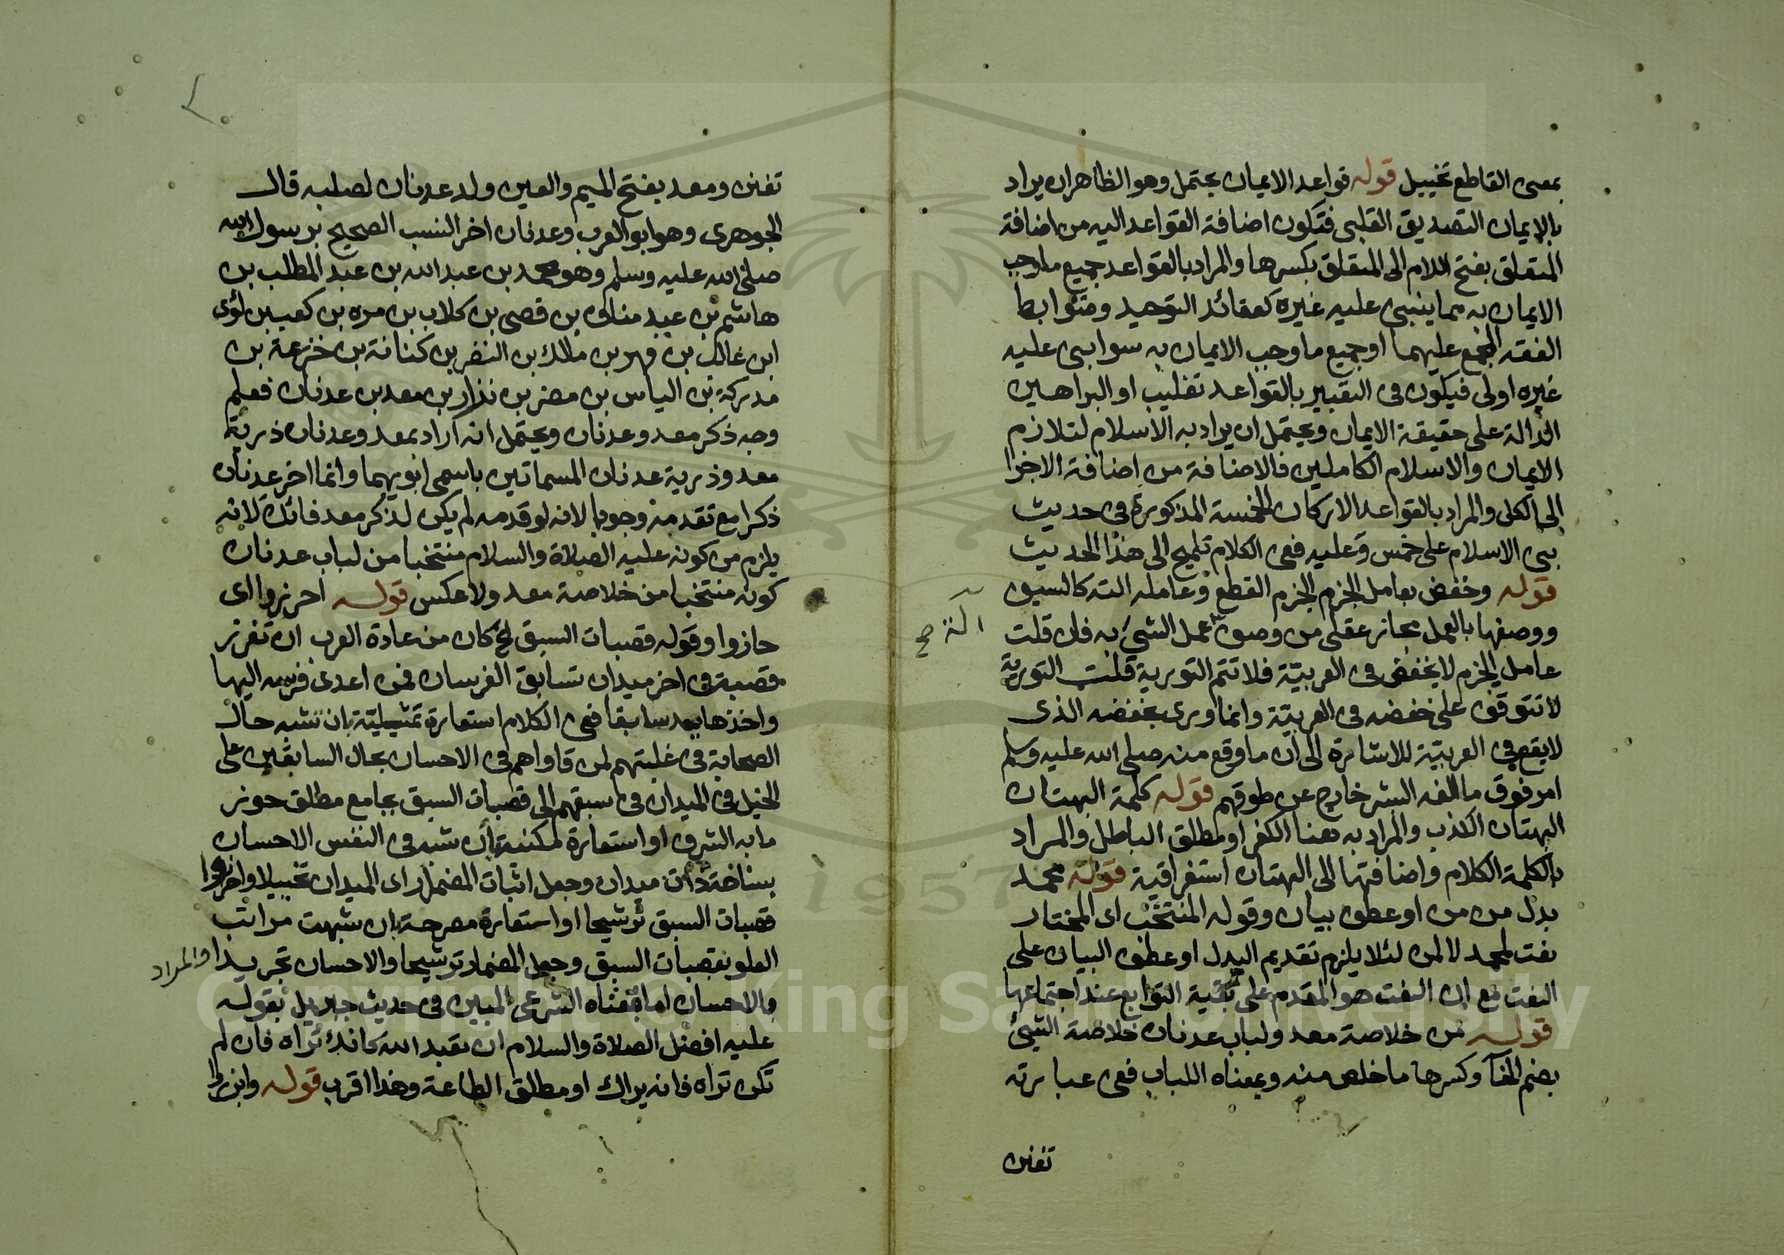 بمعنى القاطع تخييل قوله قواعد الايمان يحتمل وهو الظاهر ان يراد
بالايمان التصديق القلبى فتكون اضافة القواعد اليه من اضافة
المتعلق بفتح اللام الى المتعلق بكسرها والمراد بالقواعد جميع ما وجب
الايمان به مما ينبنى عليه غيره كعقائد التوحيد وضوابط
الفقه المجمع عليهما او جميع ما وجب الايمان به سوا بنى عليه
غيره اولى فيكون فى التعبير بالقواعد تغليب او البراهين
الدالة على حقيقة الايمان ويحتمل ان يراد به الاسلام لتلازم
الايمان والاسلام الكاملين فالاضافة من اضافة الاجزا
الى الكل والمراد بالقواعد الاركان الخمسة المذكورة فى حديث
بنى الاسلام على خمس وعليه ففى الكلام تلميح الى هذا الحديث
قوله وخفض بعامل الجزم الجزم القطع وعامله الته كالسيف
ووصفها بالعمل مجاز عقلى من وصف عمل الشئ به فان قلت
آلة صح
عامل الجزم لا يخفض فى العربية فلا تتم التورية قلت التورية
لا تتوقف على خفضه فى العربية وانما ورى بخفضه الذى
لا يقع فى العربية للاشارة الى ان ما وقع منه صلى الله عليه وسلم
امر فوق ما الفه البشر خارج عن طوقهم قوله كلمة البهتان
البهتان الكذب والمراد به هنا الكفر او مطلق الباطل والمراد
بالكلمة الكلام واضافتها الى البهتان استغراقية قوله محمد
بدل من من او عطف بيان وقوله المنتخب اى المختار
نعت لمحمد لا لمن لئلا يلزم تقديم البدل او عطف البيان على
النعت مع ان النعت هو المقدم على بقية التوابع عند اجتماعها
قوله من خلاصة معد ولباب عدنان خلاصة الشئ
بضم الخآ وكسرها ما خلص منه وبمعناه اللباب ففى عبارته
تفنن
تفنن ومعد بفتح الميم والعين ولد عدنان لصلبه قال
الجوهرى وهو ابو العرب وعدنان اخر النسب الصحيح لرسول الله
صلى الله عليه وسلم وهو محمد بن عبد الله بن عبد المطلب بن
هاشم بن عبد مناف بن قصى بن كلاب بن مره بن كعب بن لؤى
ابن غالب بن فهر بن مالك بن النضر بن كنانة بن خزيمة بن
مدركة بن الياس بن مضر بن نزار بن معد بن عدنان فعلم
وجه ذكر معد وعدنان ويحتمل انه اراد بمعد وعدنان ذرية
معد وذرية عدنان المسماتين باسمى ابويهما وانما اخر عدنان
ذكرا مع تقدمه وجودا لانه لو قدمه لم يكن لذكر معد فائدة لانه
يلزم من كونه عليه الصلاة والسلام منتخبا من لباب عدنان
كونه منتخبا من خلاصة معد ولا عكس قوله احرزوا اى
حازوا وقوله قصبات السبق الخ كان من عادة العرب ان تغرز
قصبة فى اخر ميدان تسابق الفرسان فمن اعدى فرسه اليها
واخذها يعد سابقا ففى الكلام استعارة تمثيلية بان تشبه حال
الصحابة فى غلبتهم لمن قاواهم فى الاحسان بحال السابقين على
الخيل فى الميدان فى سبقهم الى قصبات السبق بجامع مطلق حوز
ما به الشرف او استعارة مكنية بان شبه فى النفس الاحسان
ميدان وجعل اثبات المضمار اى الميدان تخييلا واحرزوا
قصبات السبق ترشيحا او استعارة مصرحة بان شبهت مراتب
العلو بقصبات السبق وجعل المضمار ترشيحا والاحسان تجريدا والمراد
بالاحسان اما معناه الشرعى المبين فى حديث جبريل بقوله
عليه افضل الصلاة والسلام ان تعبد الله كانك تراه فان لم
تكن تراه فانه يراك او مطلق الطاعة وهذا اقرب قوله وابرزوا